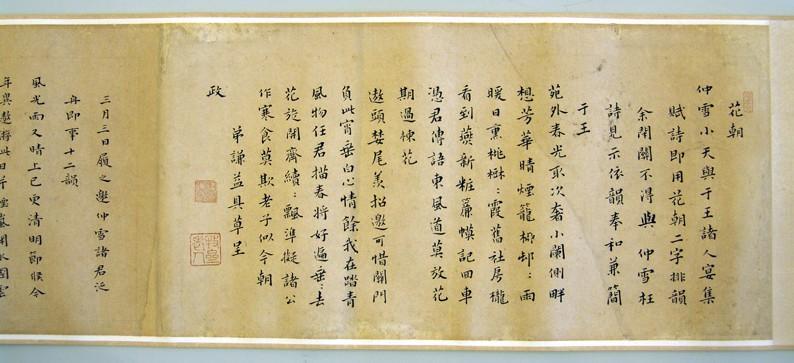 花朝
仲雪小天與于王諸人宴集
賦詩即用花朝二字排韻
余閉關不得與 仲雪枉
詩見示依韻奉和兼簡
于王
苑外春光取次奢小闌側畔
想芳華晴煙籠柳邨〻雨
暖日熏桃樹〻霞舊社房櫳
看到燕新粧簾幙記回車
憑君傳語東風道莫放花
期過楝花
遨頭婪尾羨招邀可惜關門
負此宵垂白心情餘我在踏青
風物任君描春將好遍垂〻去
花旋開齊續〻飄準擬諸公
作寒食莫欺老子似今朝
弟謙益具草呈
政
三月三日履之邀仲雪諸君泛
舟即事十二韻
風光雨又晴上巳更清明節候今